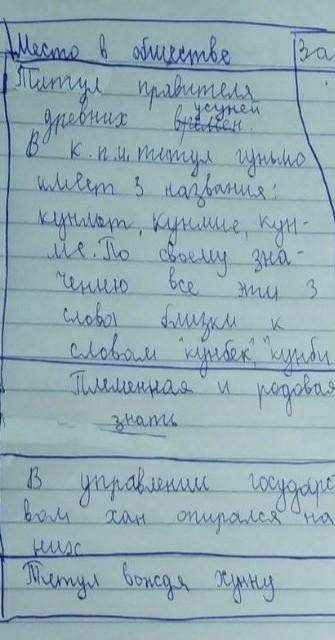 Место в обществе За
Титул правителя
усуней
древних времен.
В к.п.и. титул гуньмо
имеет 3 названия:
кунмот, кунмие, кун-
ме. По своему зна-
чению все эти 3
слова близки к
словам "кунбек", "кунби
Племенная и родовая
знать
В управлении государс
вом хан опирался на
них
Титул вождя хунну